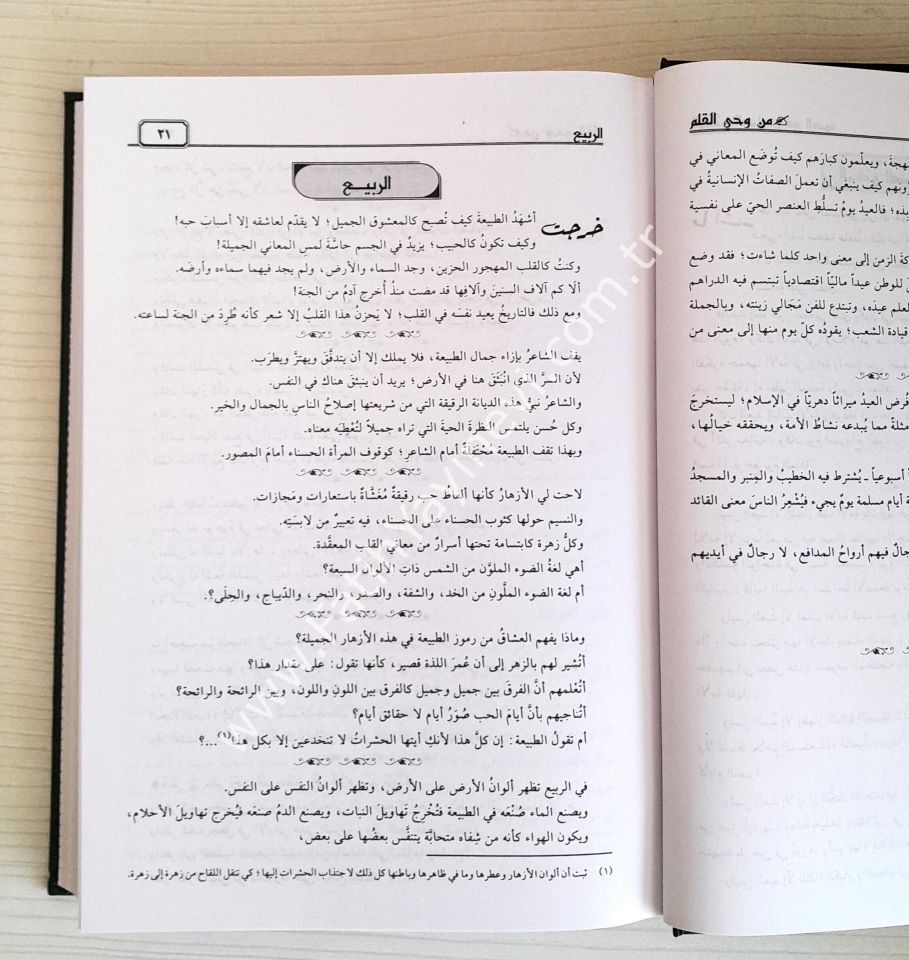 من وحي القلم
هجةَ، ويعلّمون كبارَهم كيف تُوضَع المعاني في
رونهم كيف ينبغي أن تعملَ الصفاتُ الإنسانيةُ في
يذه؛ فالعيدُ يومُ تسلُّطِ العنصر الحيّ على نفسية
كةَ الزمن إلى معنى واحد كلما شاءت؛ فقد وضع
للوطن عيداً ماليّاً اقتصادياً تبتسم فيه الدراهم
لعلم عيدَه، وتبتدع للفن مَجَالي زينته، وبالجملة
قيادة الشعب؛ يقودُه كلّ يوم منها إلى معنى من
فُرض العيدُ ميراثاً دهريّاً في الإسلام؛ ليستخرجَ
مثلةً مما يُبدعه نشاطُ الأمة، ويحققه خيالُها،
أسبوعياً ـ يُشترط فيه الخطيبُ والمنبر والمسجدُ
ة أيام مسلمة يومٌ يجيء فيُشْعِرُ الناسَ معنى القائد
جالٌ فيهم أرواحُ المدافع، لا رجالٌ في أيديهم
الربيع
٢١
الربيــع
خرجت أشهَدُ الطبيعةَ كيف تُصبح كالمعشوق الجميل؛ لا يقدّم لعاشقه إلا أسبابَ حبه!
وكيف تكونُ كالحبيب؛ يزيدُ في الجسم حاسَّةَ لمسِ المعاني الجميلة!
وكنتُ كالقلب المهجور الحزين، وجد السماء والأرض، ولم يجد فيهما سماءه وأرضَه.
ألا كم آلاف السنينَ وآلافِها قد مضت منذُ أُخرج آدمُ من الجنة!
ومع ذلك فالتاريخُ يعيد نفسَه في القلب؛ لا يَحزنُ هذا القلبُ إلا شعر كأنه طُرِدَ من الجنة لساعته.
يقف الشاعرُ بإزاء جمال الطبيعة، فلا يملك إلا أن يتدفَّقَ ويهتزَّ ويطرَب.
لأن السرَّ الذي انْبَثَقَ هنا في الأرض؛ يريد أن ينبثقَ هناك في النفس.
والشاعرُ نبيُّ هذه الديانة الرقيقة التي من شريعتها إصلاحُ الناس بالجمال والخير.
وكل حُسن يلتمس النظرةَ الحيةَ التي تراه جميلاً لتُعْطِيَه معناه.
وبهذا تقف الطبيعة مُحْتَفِلَةً أمام الشاعر؛ كوقوف المرأة الحسناء أمامَ المصور.
لاحت لي الأزهارُ كأنها ألفاظُ حب رقيقةٌ مُغَشَّاةٌ باستعارات ومَجازات.
والنسيم حولها كثوب الحسناء على الحسناء، فيه تعبيرٌ من لابسَتِه.
وكلُّ زهرة كابتسامة تحتها أسرارٌ من معاني القلب المعقَّدة.
أهي لغةُ الضوء الملوَّن من الشمس ذاتِ الألوان السبعة؟
أم لغة الضوء الملَّونِ من الخد، والشفة، والصدر، والنحر، والدّيباج، والحِلَى؟.
وماذا يفهم العشاقُ من رموز الطبيعة في هذه الأزهار الجميلة؟
أتُشير لهم بالزهر إلى أن عُمرَ اللذة قصير، كأنها تقول: على مقدار هذا؟
أتُعْلمهم أنَّ الفرقَ بين جميل وجميل كالفرق بين اللونِ واللون، وبين الرائحة والرائحة؟
أتُناجيهم بأنَّ أيامَ الحب صُوَرُ أيام لا حقائق أيام؟
أم تقولُ الطبيعة: إن كلَّ هذا لأنكِ أيتها الحشراتُ لا تنخدعين إلا بكل هذا(١)...؟
في الربيع تظهر ألوانُ الأرض على الأرض، وتظهر ألوانُ النفس على النفس.
ويصنع الماء صُنْعَه في الطبيعة فتُخْرِجُ تَهاويلَ النبات، ويصنع الدمُ صنعَه فيُخرج تهاويلَ الأحلام،
ويكون الهواء كأنه من شِفاه متحابَّة يتنفَّس بعضُها على بعض،
(١) ثبت أن ألوان الأزهار وعطرها وما في ظاهرها وباطنها كل ذلك لاجتذاب الحشرات إليها؛ كي تنقل اللقاح من زهرة إلى زهرة.